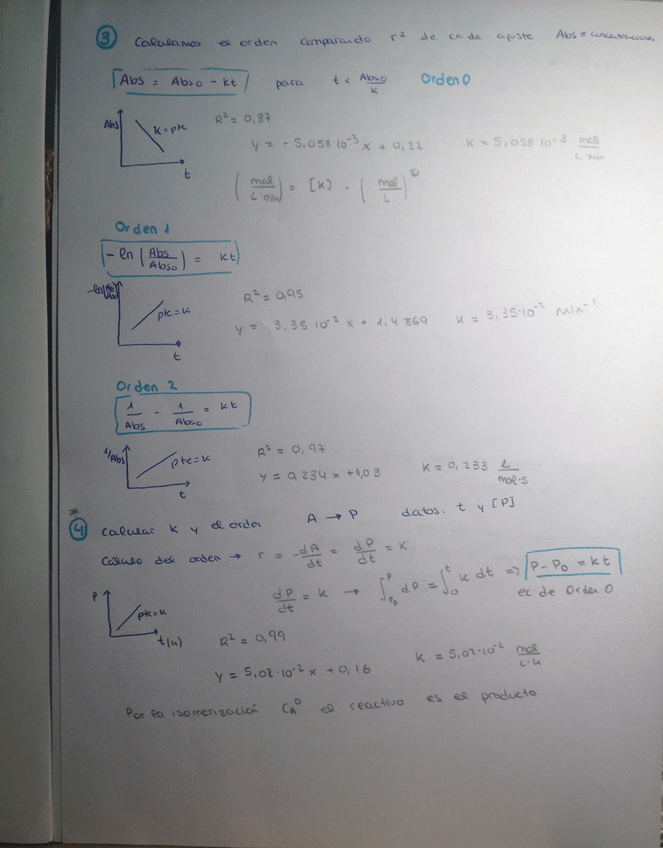 3 Calculamos el orden comparando r² de cada ajuste Abs = concentraciones
Abs = Abs0 - kt para t < Abs0/k Orden 0
Abs k = pte t
R² = 0,87
y = - 5,058·10⁻³ x + 0,22 k = 5,058·10⁻³ mol/L·min
(mol/L·min) = [k] · (mol/L)⁰
Orden 1
- ln (Abs/Abs0) = kt
pte = k t
R² = 0,95
y = 3,35·10⁻² x + 1,4869 k = 3,35·10⁻² min⁻¹
Orden 2
1/Abs - 1/Abs0 = kt
1/Abs pte = k t
R² = 0,97
y = 0,234 x + 4,03 k = 0,233 L/mol·s
* 4 Calcular k y el orden A → P datos: t y [P]
Cálculo del orden → r = -dA/dt = dP/dt = k
dP/dt = k → ∫P0^P dP = ∫0^t k dt => P - P0 = kt
ec de Orden 0
P pte = k t(h)
R² = 0,99
y = 5,02·10⁻² x + 0,16 k = 5,02·10⁻² mol/L·h
Por la isomerización CA⁰ el reactivo es el producto